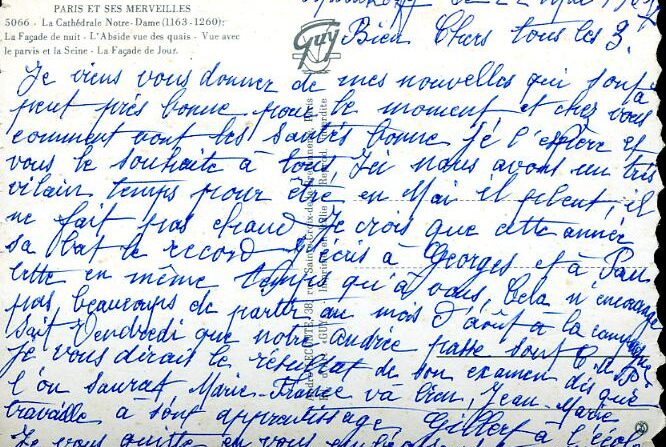 PARIS ET SES MERVEILLES
5066 - La Cathédrale Notre-Dame (1163-1260):
La Façade de nuit - L'Abside vue des quais - Vue avec
le parvis et la Seine - La Façade de Jour.
GUY
le 22 Mai
Bien Chers tous les 3.
Je viens vous donner de mes nouvelles qui sont à
peut près bonne pour le moment et chez vous
comment vont les santés bonne je l'espère et
vous le souhaite à tous, Ici nous avons un très
vilain temps pour être en Mai il pleut, il
ne fait pas chaud Je crois que cette année
sa bat le record J'écris à Georges et à Pau
lette en même temps qu'à vous, Cela n'encourage
pas beaucoups de partir au mois d'août à la campagne
sait Vendredi que notre Andrée passe sont C.A.P.
je vous dirait le résultat de son examen dis que
l'on saurat Marie-France va bien, Jean-Marie
travaille à sont apprentissage, Gilbert à l'école
Je vous quitte en vous